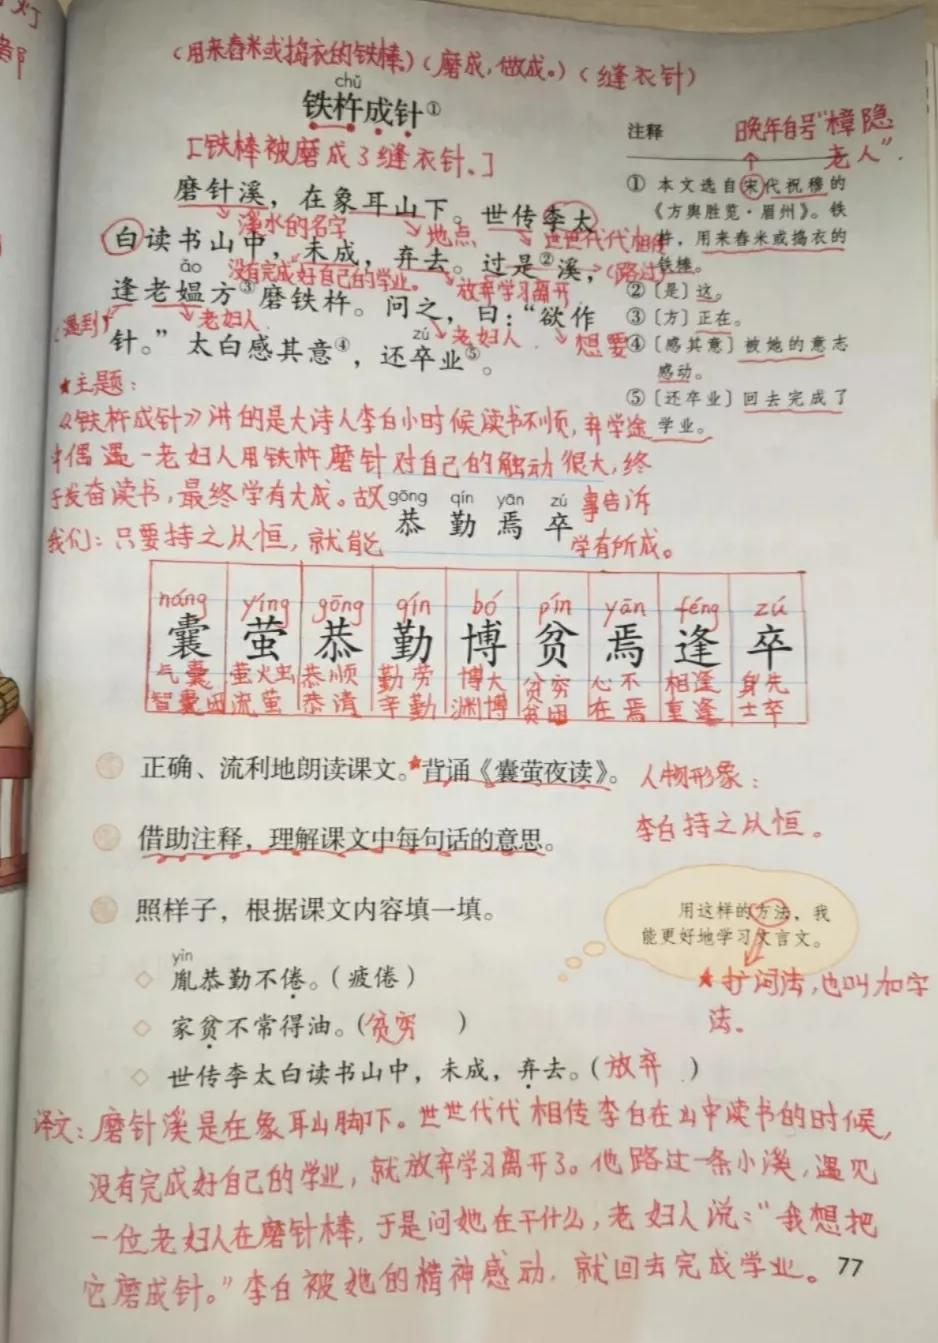 灯
部
(用来舂米或捣衣的铁棒。)(磨成,做成。)(缝衣针)
chǔ
铁杵成针①
[铁棒被磨成了缝衣针。]
磨针溪,在象耳山下。世传李太
溪水的名字 地点 世世代代相传
白读书山中,未成,弃去。过是②溪,
没有完成好自己的学业。 放弃学习离开 (路过)
ǎo
逢老媪方③磨铁杵。问之,曰:“欲作
(遇到) 老妇人 老妇人 想要
zú
针。”太白感其意④,还卒业⑤。
注释
晚年自号“樟隐
老人”.
① 本文选自宋代祝穆的
《方舆胜览·眉州》。铁
杵,用来舂米或捣衣的
铁棒。
②〔是〕这。
③〔方〕正在。
④〔感其意〕被她的意志
感动。
⑤〔还卒业〕回去完成了
学业。
★主题:
《铁杵成针》讲的是大诗人李白小时候读书不顺,弃学途
中偶遇一老妇人用铁杵磨针对自己的触动很大,终
于发奋读书,最终学有大成。故 事告诉
我们:只要持之从恒,就能 学有所成。
gōng qín yān zú
恭 勤 焉 卒
náng yíng gōng qín bó pín yān féng zú
囊 萤 恭 勤 博 贫 焉 逢 卒
气囊 萤火虫 恭顺 勤劳 博大 贫穷 心不 相逢 身先
智囊团 流萤 恭请 辛勤 渊博 贫困 在焉 重逢 士卒
正确、流利地朗读课文。★背诵《囊萤夜读》。
人物形象:
李白持之从恒。
借助注释,理解课文中每句话的意思。
照样子,根据课文内容填一填。
用这样的方法,我
能更好地学习文言文。
★扩词法,也叫加字
法.
yìn
胤恭勤不倦。(疲倦)
家贫不常得油。(贫穷 )
世传李太白读书山中,未成,弃去。(放弃 )
译文:磨针溪是在象耳山脚下。世世代代相传李白在山中读书的时候,
没有完成好自己的学业,就放弃学习离开了。他路过一条小溪,遇见
一位老妇人在磨针棒,于是问她在干什么,老妇人说:“我想把
它磨成针。”李白被她的精神感动,就回去完成学业。
77